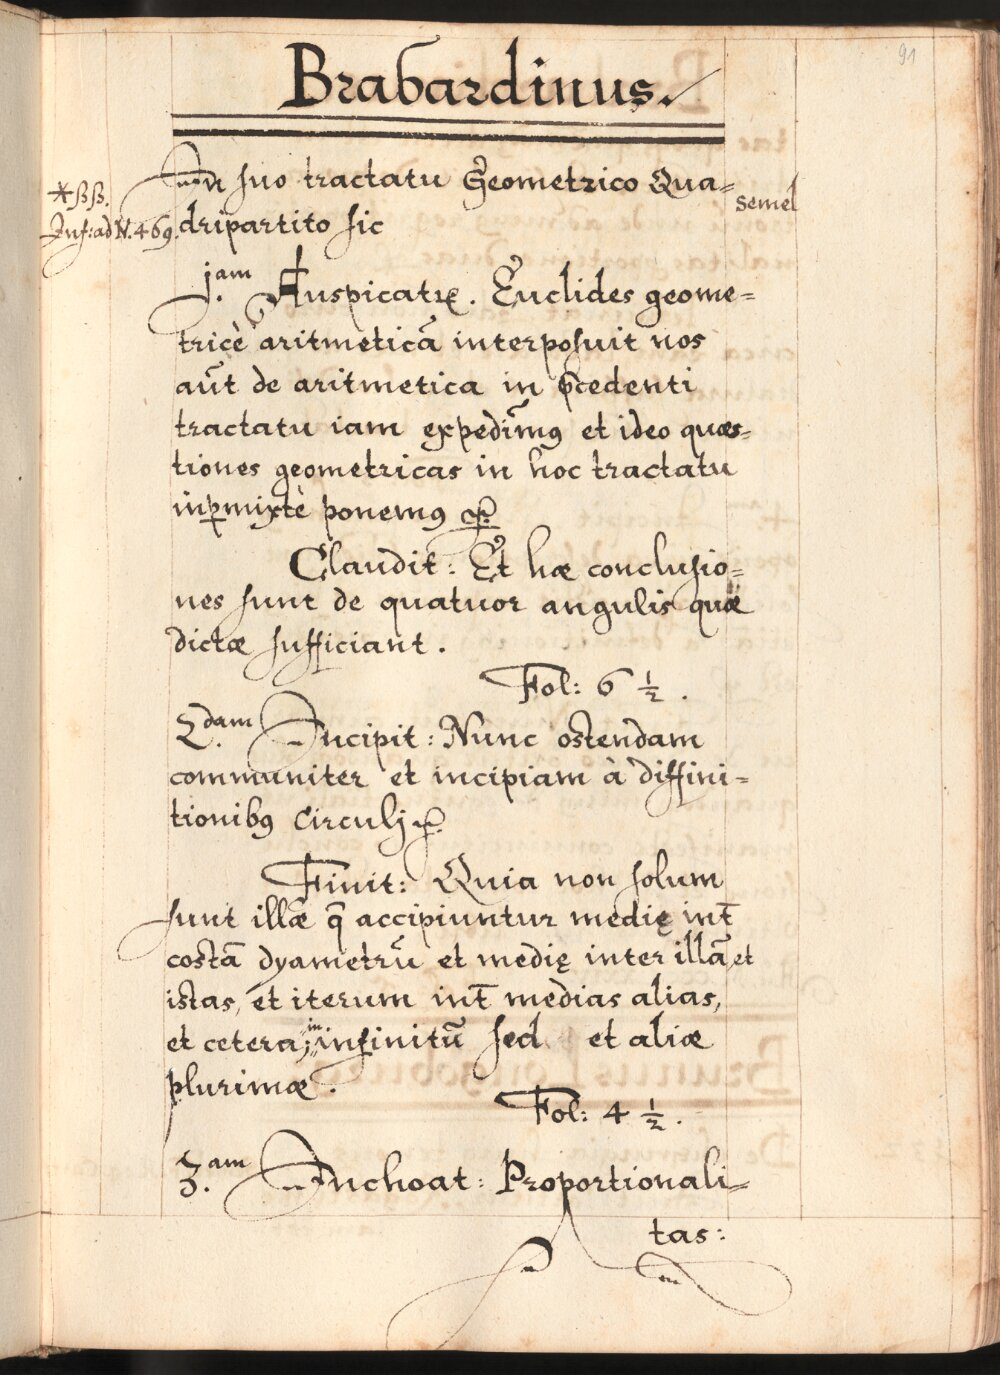 91
Brabardinus.
*ßß.
Inf: ad N. 469.
In suo tractatu Geometrico Qua=
semel
dripartito sic
jam Auspicatr. Euclides geome=
tricè aritmeticā interposuit nos
aūt de aritmetica in p̄cedenti
tractatu iam expedim̄9 et ideo quæs=
tiones geometricas in hoc tractatu
inp̱mixtè ponem9
Claudit: Et hæ conclusio=
nes sunt de quatuor angulis quæ
dictæ sufficiant.
Fol: 6 1/2.
2.dam Incipit: Nunc ostendam
communiter et incipiam à diffini=
tionib9 Circulj
Finit: Quia non solum
sunt illæ q̄ accipiuntur medię int̄
costā dyametrū et medię inter illā et
istas, et iterum int̄ medias alias,
et cetera; in infinitū sed et aliæ
plurimæ.
Fol: 4 1/2.
3.am Inchoat: Proportionali=
tas: